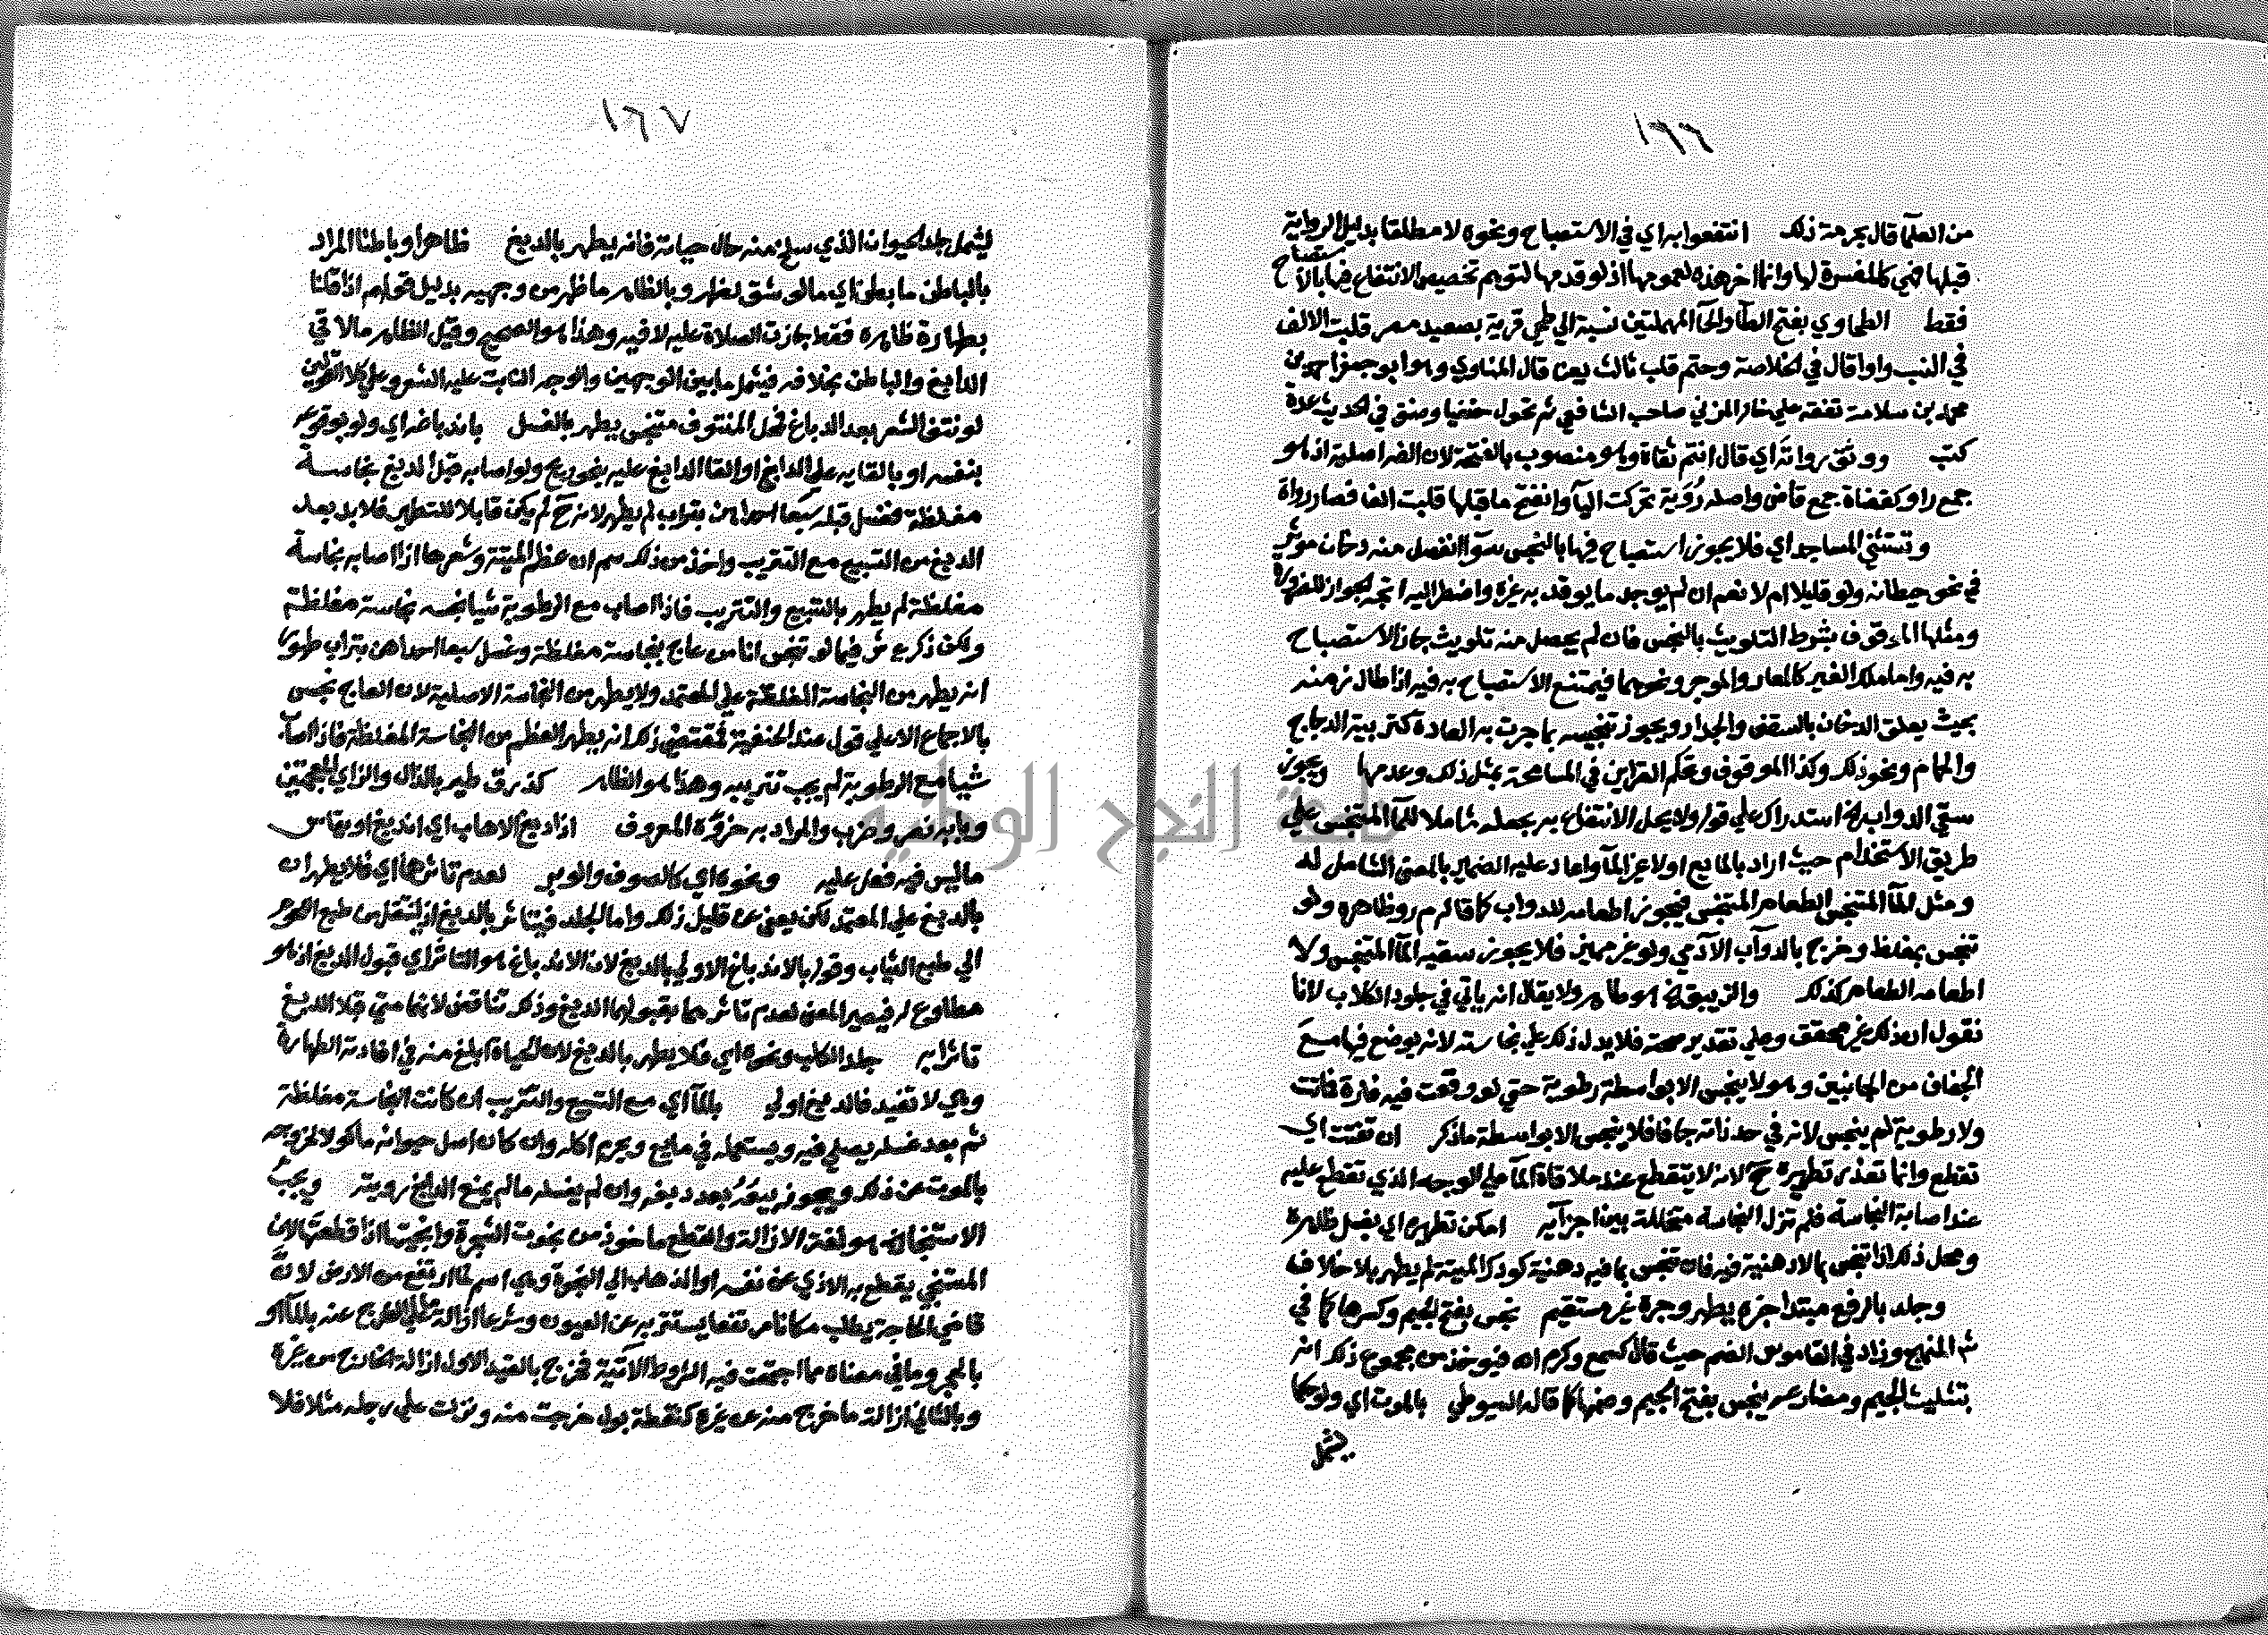 ١٦٦
من العلما قال بحرمة ذلك انتفعوا به اي في الاستصباح ونحوه لا مطلقا بدليل الرواية
قبلها فهي كالمفسرة لها وانما اخر هذه لعمومها اذ لو قدمها لتوهم تخصيص الانتفاع فيها بالاستصباح
فقط الطحاوي بفتح الطآ والحآ المهملتين نسبة الي طحي قرية بصعيد مصر قلبت الالف
في النسب واوا قال في الخلاصة وحتم قلب ثالث يعن قال المناوي وهو ابو جعفر احمد بن
محمد بن سلامة تفقه علي خاله المزني صاحب الشافعي ثم تحول حنفيا وصنف في الحديث عدة
كتب ووثق رواته اي قال انتم ثقاة وهو منصوب بالفتحة لان الفه اصلية اذ هو
جمع راو كقضاة جمع قاض واصله رُوَيَة تحركت اليآ وانفتح ما قبلها قلبت الفا فصار رواة
وتستثني المساجد اي فلا يجوز استصباح فيها بالنجس سوآ انفصل منه دخان موثر
في نحو حيطانه ولو قليلا ام لا نعم ان لم يوجد ما يوقد به غيره واضطر اليه اتجه الجواز للضرورة
ومثلها الموقوف بشرط التلويث بالنجس فان لم يحصل منه تلويث جاز الاستصباح
به فيه واما ملك الغير كالمعار والموجر ونحوهما فيمتنع الاستصباح به فيه اذا طال زمنه
بحيث يعلق الدخان بالسقف والجدار ويجوز تنجيسه بما جرت به العادة كتربية الدجاج
والحمام ونحو ذلك وكذا الموقوف وتحكم القراين في المسامحة بمثل ذلك وعدمها ويجوز
سقي الدواب الخ استدراك علي قوله ولا يحل الانتفاع به بجعله شاملا للمآ المتنجس علي
طريق الاستخدام حيث اراد بالمايع اولا غير المآ واعاد عليه الضمير بالمعني الشامل له
ومثل المآ المتنجس الطعام المتنجس فيجوز اطعامه للدواب كما قاله م ر وظاهره ولو
تنجس بمغلظ وخرج بالدوآب الآدمي ولو غير مميز فلا يجوز سقيه المآ المتنجس ولا
اطعامه الطعام كذلك والزيبق الخ هو طاهر ولا يقال انه ياتي في جلود الكلاب لانا
نقول ان ذلك غير محقق وعلي تقدير صحته فلا يدل ذلك علي نجاسته لانه يوضع فيها مع
الجفاف من الجانبين وهو لا ينجس الا بواسطة رطوبة حتي لو وقعت فيه فارة فماتت
ولا رطوبة لم ينجس لانه في حد ذاته جاف فلا ينجس الا بواسطة ما ذكر ان تفتت اي
تقطع وانما تعذر تطهيره ح لانه لا يتقطع عند ملاقاة المآ علي الوجه الذي تقطع عليه
عند اصابة النجاسة فلم تزل النجاسة متخللة بين اجزآيه امكن تطهيره اي بغسل ظاهره
ومحل ذلك اذا تنجس بما لا دهنية فيه فان تنجس بما فيه دهنية كودك الميتة لم يطهر بلا خلاف
وجلد بالرفع مبتدا خبره يطهر وجره غير مستقيم نجس بفتح الجيم وكسرها كما في
ثم المنهج وزاد في القاموس الضم حيث قال كسمع وكرم اه فيوخذ من مجموع ذلك انه
بتثليث الجيم ومضارعه ينجس بفتح الجيم وضمها كما قاله السيوطي بالموت اي ولو حكما
ليشمل
١٦٧
ليشمل جلد الحيوان الذي سلخ منه حال حياته فانه يطهر بالدبغ ظاهرا وباطنا المراد
بالباطن ما بطن اي ما لو شق لظهر وبالظاهر ما ظهر من وجهيه بدليل قولهم اذا قلنا
بطهارة ظاهره فقط جازت الصلاة عليه لا فيه وهذا هو الصحيح وقيل الظاهر ما لاقي
الدابغ والباطن بخلافه فيشمل ما بين الوجهين والوجه الثابت عليه الشعر وعلي كلا القولين
لو نتف الشعر بعد الدباغ فمحل المنتوف متنجس يطهر بالغسل باندباغه اي ولو بوقوعه
بنفسه او بالقايه علي الدابغ او القا الدابغ عليه بنحو ريح ولو اصابه قبل الدبغ نجاسة
مغلظة فغسل قبله سبعا احداهن بتراب لم يطهر لانه ح لم يكن قابلا للتطهير فلا بد بعد
الدبغ من التسبيع مع التتريب واخذ من ذلك سم ان عظم الميتة وشعرها اذا اصابه نجاسة
مغلظة لم يطهر بالتسبيع والتتريب فاذا اصاب مع الرطوبة شيا نجسه نجاسة مغلظة
ولكن ذكر ع ش فيما لو تنجس انا من عاج بنجاسة مغلظة وغسل سبعا احداهن بتراب طهور
انه يطهر من النجاسة المغلظة علي المعتمد ولا يطهر من النجاسة الاصلية لان العاج نجس
بالاجماع الا علي قول عند الحنفية فمقتضي ذلك انه يطهر العظم من النجاسة المغلظة فاذا اصاب
شيا مع الرطوبة لم يجب تتريبه وهذا هو الظاهر كذرق طير بالذال والزاي المعجمتين
وبابه نصر وضرب والمراد به خروه المعروف اذا دبغ الاهاب اي اندبغ او يقاس
ما ليس فيه فعل عليه ونحوه اي كالصوف والوبر لعدم تاثرهما اي فلا يطهران
بالدبغ علي المعتمد لكن يعفي عن قليل ذلك واما الجلد فيتاثر بالدبغ اذ ينتقل من طبع اللحوم
الي طبع الثياب وقوله بالاندباغ الاولي بالدبغ لان الاندباغ هو التاثر اي قبول الدبغ اذ هو
مطاوع له فيصير المعني لعدم تاثرهما بقبولهما الدبغ وذلك تناقض لانهما متي قبلا الدبغ
تاثرا به جلد الكلب ونحوه اي فلا يطهر بالدبغ لان الحياة ابلغ منه في افادته الطهارة
وهي لا تفيد فالدبغ اولي بالمآ اي مع التسبيع والتتريب ان كانت النجاسة مغلظة
ثم بعد غسله يصلي فيه ويستعمله في مايع ويحرم اكله وان كان اصل حيوانه ماكولا لخروجه
بالموت عن ذلك ويجوز بيعُهُ بعد دبغه وان لم يغسله ما لم يمنع الدابغ رويته ويجب
الاستنجا الخ هو لغة الازالة والقطع ماخوذ من نجوت الشجرة وانجيتها اذا قطعتها لان
المستنجي يقطع به الاذي عن نفسه او الذهاب الي النجوة وهي اسم لما ارتفع من الارض لانَّ
قاضي الحاجة يطلب مكانا مرتفعا يستتر به عن العيون وشرعا ازالة ما علي الفرج عنه بالمآ او
بالحجر وما في معناه مما اجتمعت فيه الشروط الآتية فخرج بالقيد الاول ازالة الخارج من غيره
وبالثاني ازالة ما خرج منه عن غيره كنقطة بول خرجت منه ونزلت علي رجله مثلا فلا
جامعة النجاح الوطنية